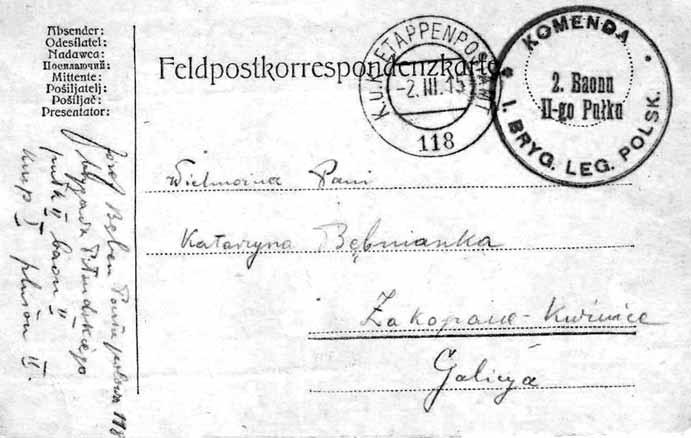 Absender:
Odesílatel:
Nadawca:
Посилаючий:
Mittente:
Pošiljatelj:
Pošiljač:
Presentator:
Feldpostkorrespondenzkarte
K.u.K. ETAPPENPOSTAMT
-2.III.15
118
KOMENDA
2. Baonu
II-go Pułku
I. BRYG. LEG. POLSK.
Wielmożna Pani
Katarzyna Bębnianka
Zakopane-
Galicya
Józef Poczta polowa 118
Piłsudskiego
pułk II baon II
komp I pluton II.